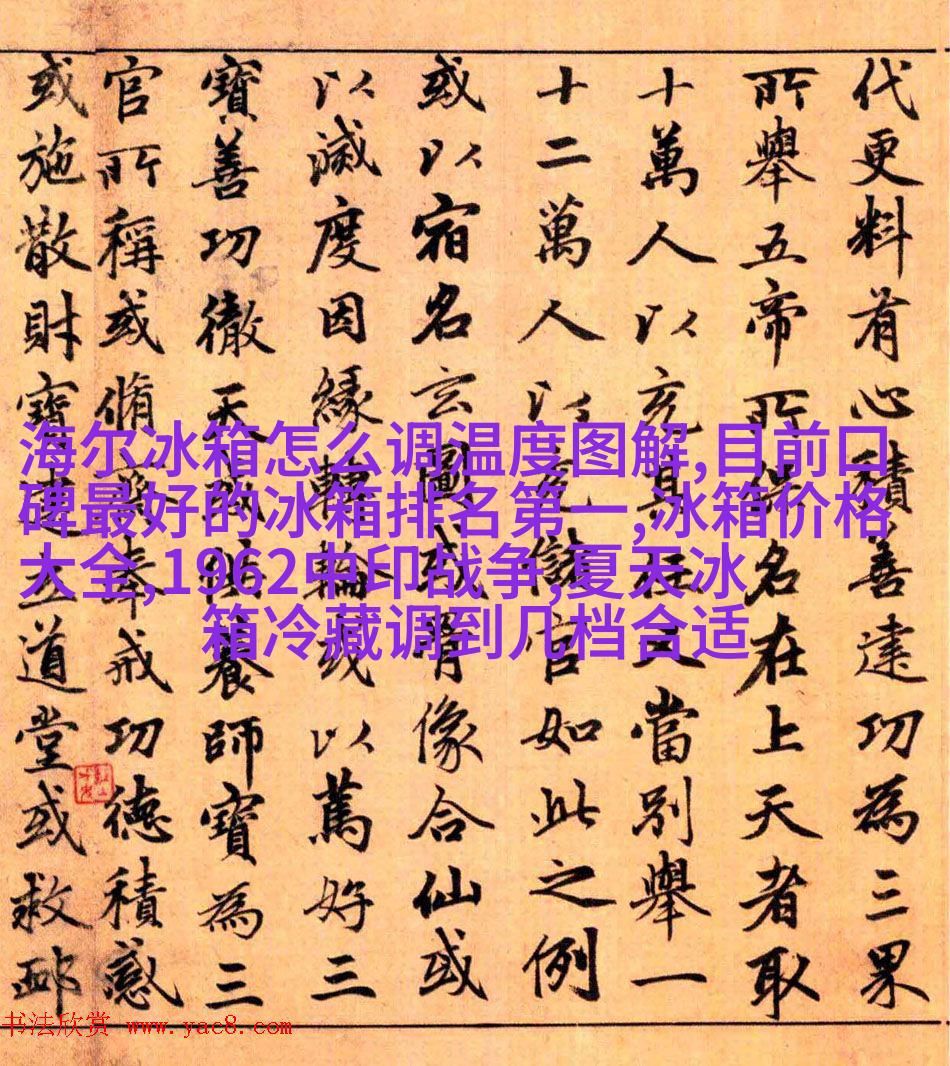 代更料有心積善建功為三果
所舉五帝所舉名在上天者取
十萬人以充其任又當別舉一
十二萬人以充儲官如此之例
或以宿名玄圖或骨像合仙或
以滅度因緣轉輪或以篤好三
寶善功徹天或供養師寶為三
官所稱或脩齋奉戒功德積感
或施散財寶建立道堂或救
海尔冰箱怎么调温度图解,目前口
碑最好的冰箱排名第一,冰箱价格
大全,1962中印战争,夏天冰
箱冷藏调到几档合适
书法欣赏 www.yac8.com